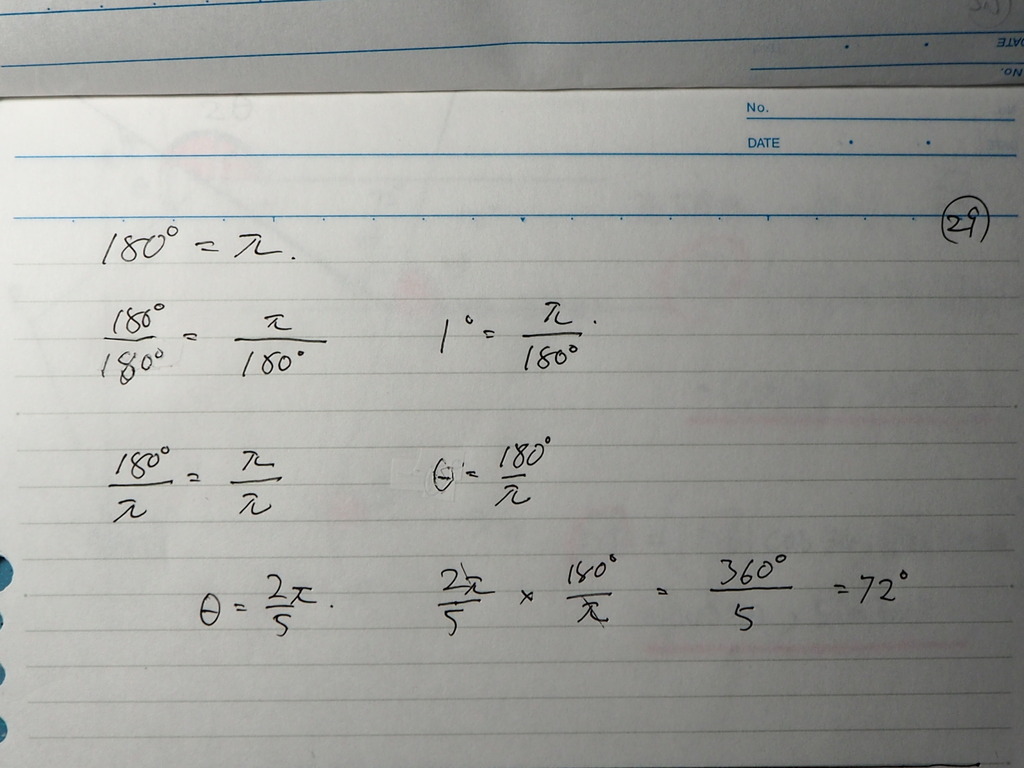 No.
DATE
29
180° = π.
180°/180° = π/180° 1° = π/180°.
180°/π = π/π θ = 180°/π
θ = 2π/5. 2π/5 × 180°/π = 360°/5 = 72°